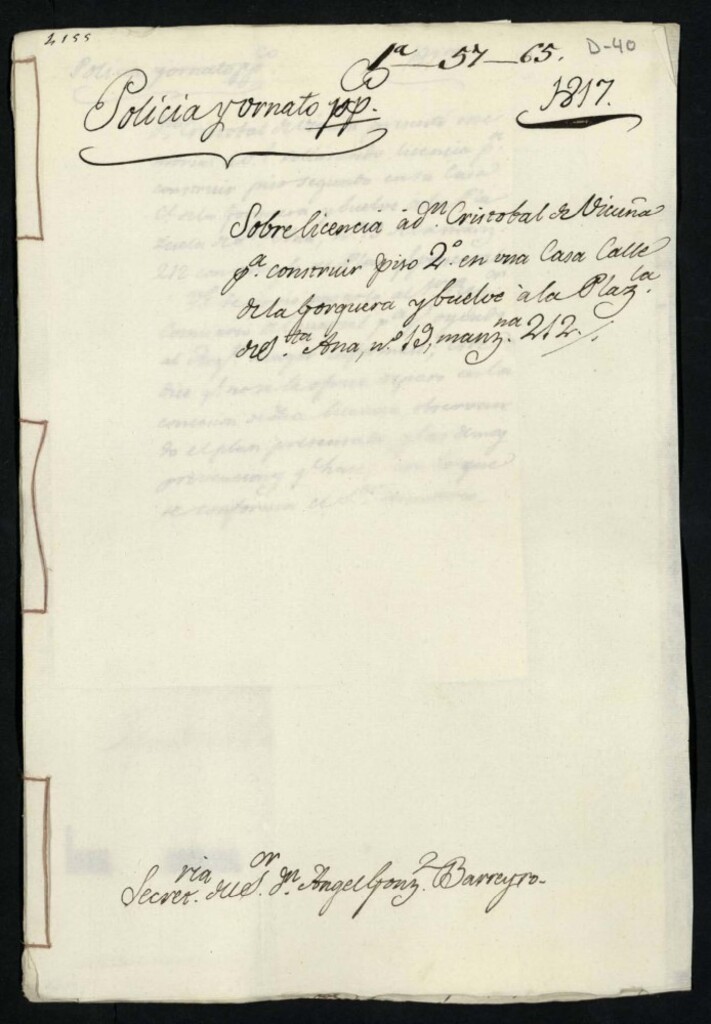 2155
1ª—57—65.
D-40
Policia y ornato pp.ᶜᵒ
1817.
Sobre licencia à d.ⁿ Cristobal de Vicuña
p.ª construir piso 2.º en una Casa Calle
de la Gorguera y buelve à la Plaz.ˡᵃ
de S.ᵗᵃ Ana, n.º 13, manz.ⁿᵃ 212.
Secret.ʳⁱᵃ del S.ᵒʳ d.ⁿ Angel Gonz.ᶻ Barreyro.